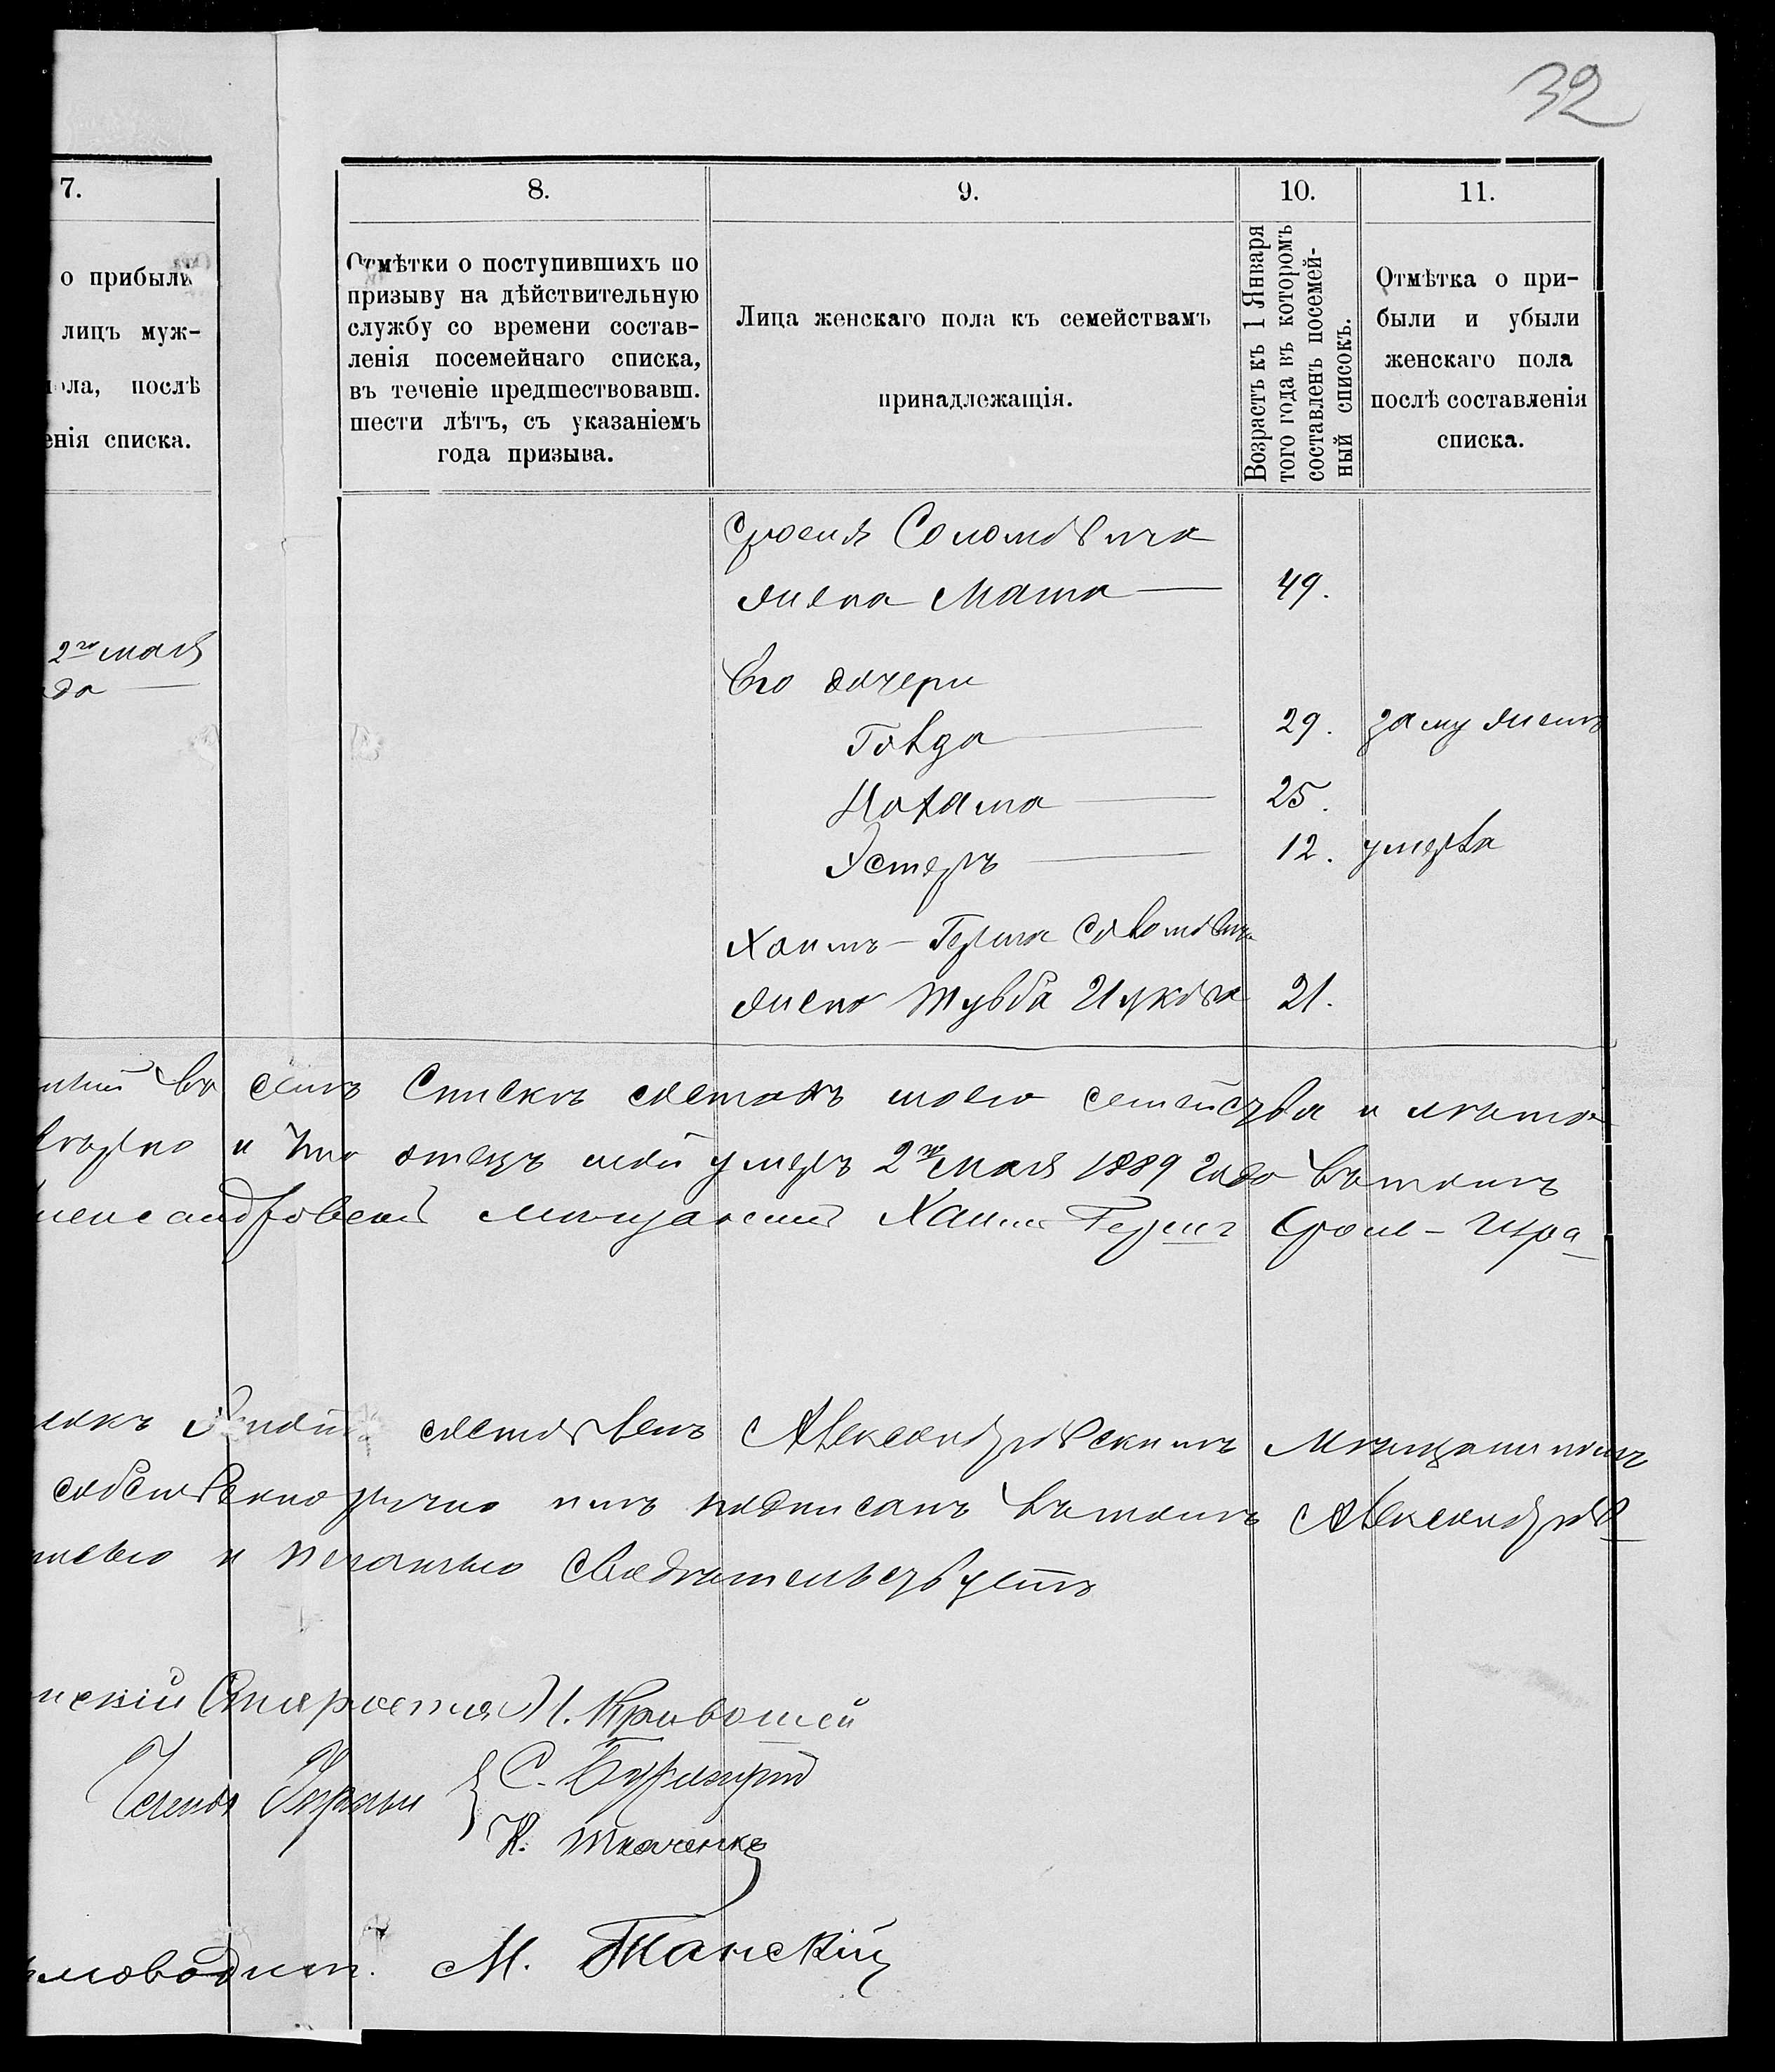 32
7.
8.
9.
10.
11.
о прибыли
лицъ муж-
пола, послѣ
енія списка.
Отмѣтки о поступившихъ по
призыву на дѣйствительную
службу со времени состав-
ленія посемейнаго списка,
въ теченіе предшествовавш.
шести лѣтъ, съ указаніемъ
года призыва.
Лица женскаго пола къ семействамъ
принадлежащія.
Возрастъ къ 1 Января
того года въ которомъ
составленъ посемей-
ный списокъ.
Отмѣтка о при-
были и убыли
женскаго пола
послѣ составленія
списка.
Сроеля Соломовича
жена Маша — 49.
2го мая
да —
Его дочери
29. замужемъ
25.
Эстеръ — 12. умерла
Хаимъ-Герша Соломовича
жена 21.
въ семъ Спискѣ составъ моего семейства и лѣта
вѣрно и что отецъ мой умеръ 2го мая 1889 года въ томъ
мѣщанинъ Хаимъ Гершъ Сроль-
составленъ Александровскимъ Мѣщаниномъ
собственноручно имъ подписанъ въ томъ Александров
и печатью свидѣтельствуетъ
Староста М. Кривошей
Члены Управы
С.
К. Ткаченко
ловодит. М. Танскій